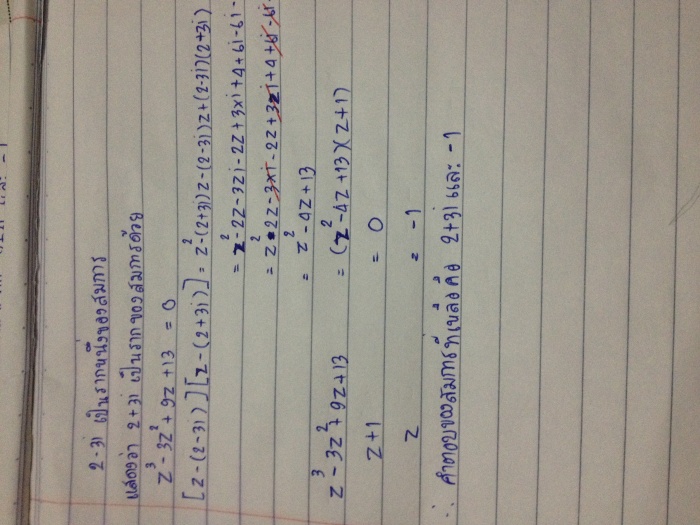 2-3i เป็นรากหนึ่งของสมการ
แสดงว่า 2+3i เป็นรากของสมการด้วย
z³ - 3z² + 9z + 13 = 0
[z-(2-3i)][z-(2+3i)] = z² - (2+3i)z - (2-3i)z + (2-3i)(2+3i)
= z² - 2z - 3zi - 2z + 3xi + 4 + 6i - 6i -
= z² - 2z - 3xi - 2z + 3zi + 4 + 6i - 6i
= z² - 4z + 13
z³ - 3z² + 9z + 13 = (z² - 4z + 13)(z+1)
z+1 = 0
z = -1
∴ คำตอบของสมการที่เหลือคือ 2+3i และ -1